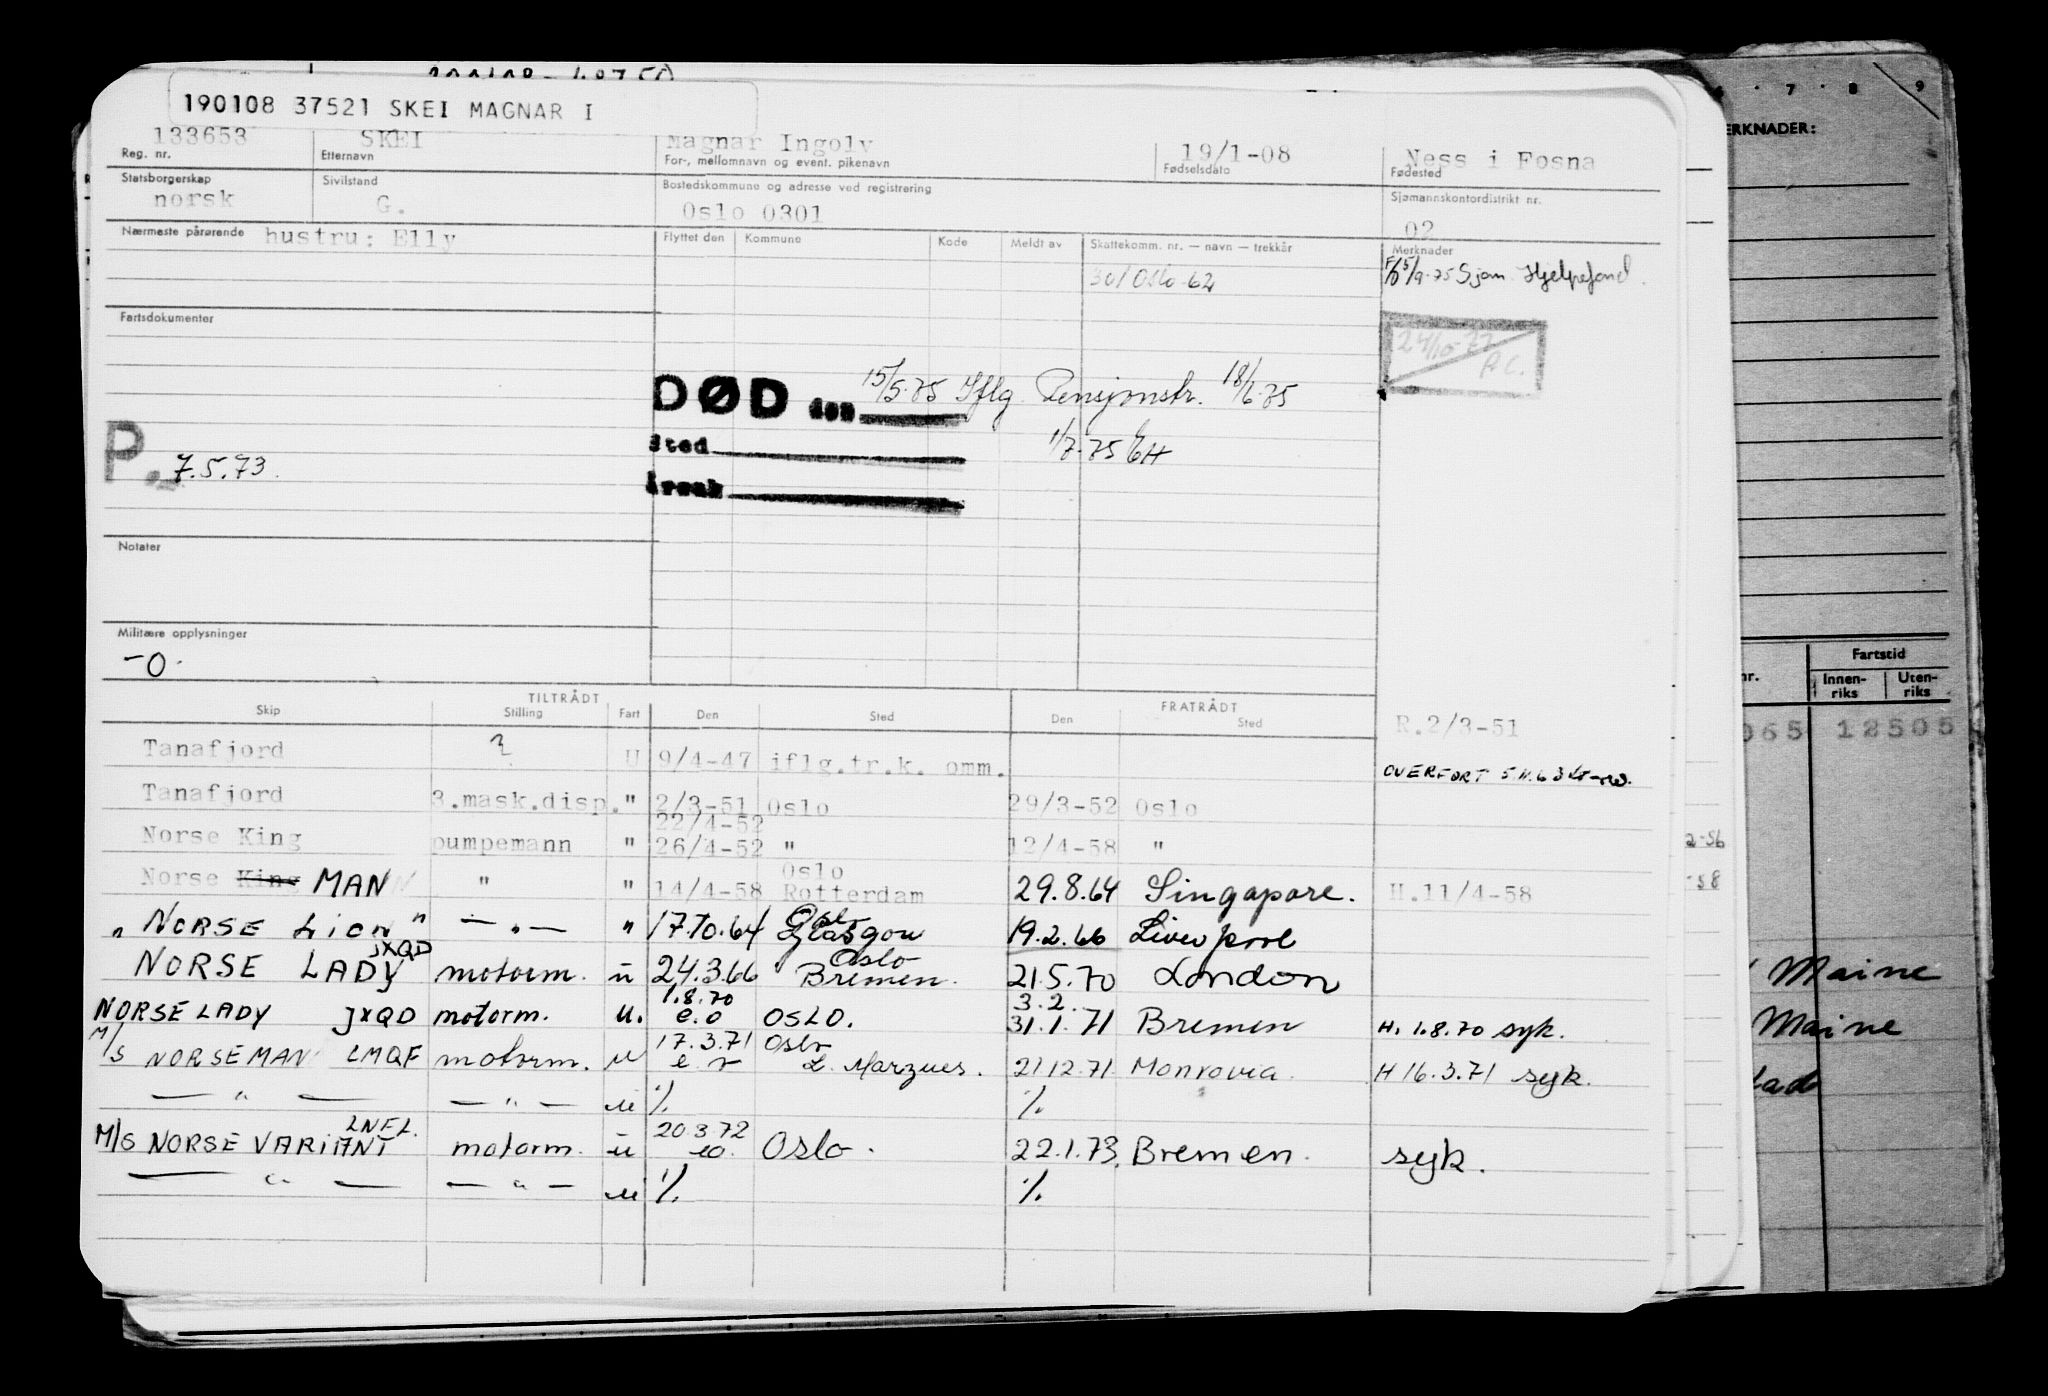 190108 37521 SKEI MAGNAR I
133653 SKEI Magnar Ingolv 19/1-08 Ness i Fosna
Reg. nr. Etternavn For-, mellomnavn og event. pikenavn Fødselsdato Fødested
Statsborgerskap Sivilstand Bostedskommune og adresse ved registrering Sjømannskontordistrikt nr.
norsk G. Oslo 0301 02
Nærmeste pårørende hustru: Elly Flyttet den Kommune Kode Meldt av Skattekomm. nr. — navn — trekkår Merknader
301 Oslo-62 5/9-75 Sjøm. Hjelpefond.
Fartsdokumenter
24/10-77
DØD den 15/5-75 Iflg. Pensjonstr. 18/6-75
Sted 1/7-75 EH
P. 7.5.73
Årsak
Notater
Militære opplysninger
-0-
TILTRÅDT FRATRÅDT
Skip Stilling Fart Den Sted Den Sted
R.2/3-51
Tanafjord ? U 9/4-47 iflg.tr.k. omm.
OVERFØRT 5.11.63
Tanafjord 3.mask.disp. " 2/3-51 Oslo 29/3-52 Oslo
22/4-52
Norse King pumpemann " 26/4-52 " 12/4-58 "
Oslo
Norse King MAN " " 14/4-58 Rotterdam 29.8.64 Singapore. H.11/4-58
Oslo
" NORSE Lion " — " — " 17.10.64 Glasgow 19.2.66 Liverpool
JXQD Oslo
NORSE LADY motorm. u 24.3.66 Bremen. 21.5.70 London
1.8.70 3.2.
NORSE LADY JXQD motorm. u. e.o OSLO. 31.1.71 Bremen H. 1.8.70 syk.
17.3.71 Oslo
M/S NORSE MAN LMQF motorm. u L. Marques. 21.12.71 Monrovia. H 16.3.71 syk.
— " — — " — u % %
LNFL. 20.3.72
M/S NORSE VARIANT motorm. u eo. Oslo. 22.1.73. Bremen. syk.
— " — — " — u % %
7 8 9
ERKNADER:
Fartstid
nr. Innen-riks Uten-riks
065 12505
2-56
-58
Maine
Maine